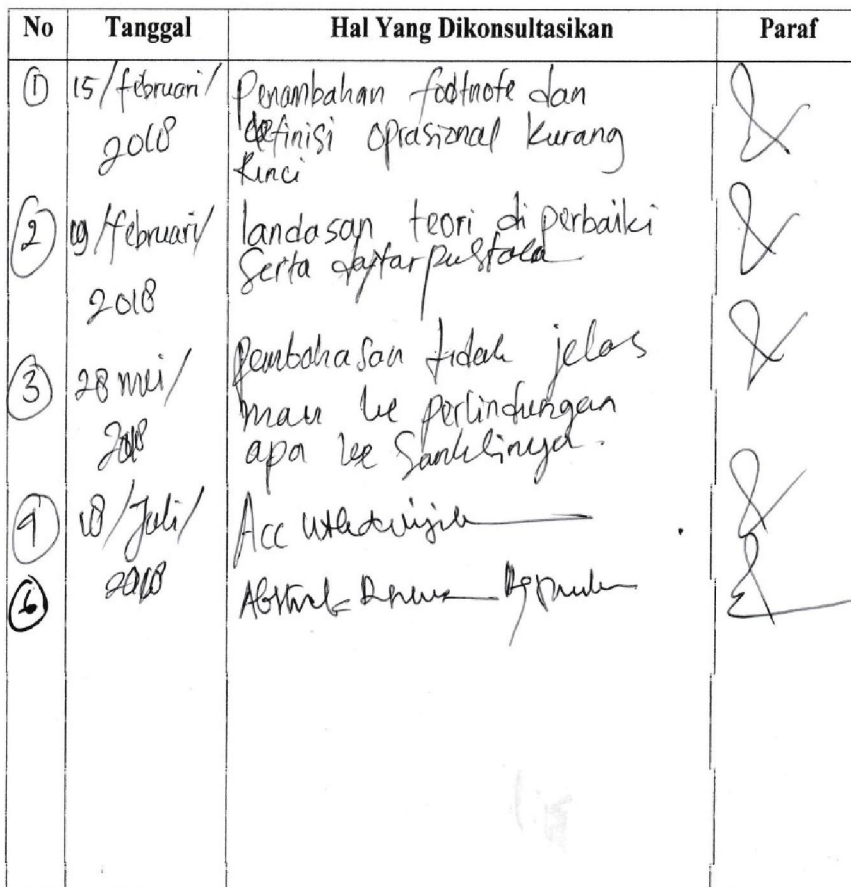 No Tanggal Hal Yang Dikonsultasikan Paraf
① 15/februari/ Penambahan footnote dan
2018 definisi oprasional kurang
Rinci
② 19/februari/ landasan teori di perbaiki
2018 Serta daftar pustaka
③ 28 mei/ Pembahasan tidak jelas
2018 mau ke perlindungan
apa ke Sanksinya.
18/Juli/ Acc
2018